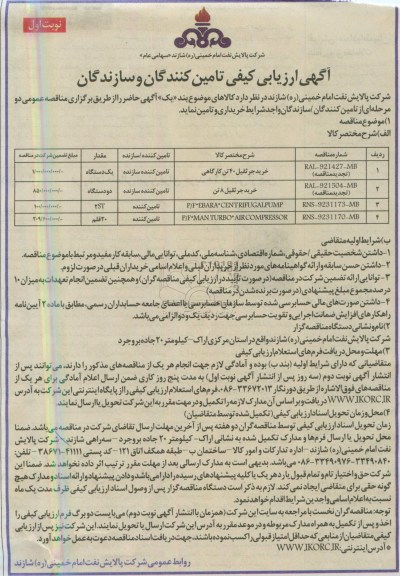 نوبت اول
شرکت پالایش نفت امام خمینی (ره) شازند «سهامی عام»
آگهی ارزیابی کیفی تامین کنندگان و سازندگان
شرکت پالایش نفت امام خمینی (ره) شازند در نظر دارد کالاهای موضوع بند «یک» آگهی حاضر را از طریق برگزاری مناقصه عمومی دو
مرحله‌ای از تامین کنندگان / سازندگان واجد شرایط خریداری و تامین نماید.
۱) موضوع مناقصه
الف) شرح مختصر کالا
ردیف شماره مناقصه شرح مختصر کالا تامین کننده / سازنده مقدار مبلغ تضمین شرکت در مناقصه
۱ RAL-921427-MB (تجدید مناقصه) خرید جرثقیل ۴۰ تن کارگاهی تامین کننده / سازنده یک دستگاه
۲ RAL-921504-MB (تجدید مناقصه) خرید جرثقیل ۸ تن تامین کننده / سازنده دو دستگاه
۳ RNS-9231173-MB P/F"EBARA"CENTRIFUGAL PUMP تامین کننده / سازنده 2ST
۴ RNS-9231170-MB P/F"MAN TURBO"AIR COMPRESSOR تامین کننده / سازنده ۲۰ قلم
ب) شرایط اولیه متقاضی
۱- داشتن شخصیت حقیقی / حقوقی، شماره اقتصادی، شناسه ملی، کد ملی، توانایی مالی، سابقه کار مفید و مرتبط با موضوع مناقصه.
۲- داشتن حسن سابقه و ارائه گواهینامه‌های مورد نظر از خریداران قبلی و اعلام اسامی خریداران قبلی در صورت لزوم.
۳- توانایی ارائه تضمین شرکت در مناقصه (در صورت تأیید در ارزیابی کیفی مناقصه گران) و همچنین تضمین انجام تعهدات به میزان ۱۰
درصد مجموع مبلغ پیشنهادی (در صورت برنده شدن در مناقصه)
۴- داشتن صورت‌های مالی حسابرسی شده توسط سازمان حسابرسی یا اعضای جامعه حسابداران رسمی، مطابق با ماده ۲ آیین نامه
راهکارهای افزایش ضمانت اجرایی و تقویت حسابرسی جهت ردیف یک و دو الزامی می‌باشد.
۲) نام و نشانی دستگاه مناقصه گزار
شرکت پالایش نفت امام خمینی (ره) شازند واقع در استان مرکزی اراک - کیلومتر ۲۰ جاده بروجرد
۳) مهلت و محل دریافت فرم‌های استعلام ارزیابی کیفی
متقاضیانی که دارای شرایط اولیه (بند ب) بوده و آمادگی لازم جهت انجام هر یک از مناقصه‌های مذکور را دارند، می‌توانند پس از
انتشار آگهی نوبت دوم (سه روز پس از انتشار آگهی نوبت اول) به مدت پنج روز کاری ضمن ارسال اعلام آمادگی برای هر یک از
مناقصه‌های فوق الاشاره از طریق دورنگار فرم‌های استعلام ارزیابی کیفی را از پایگاه اینترنتی این شرکت به آدرس
WWW.IKORC.IR دریافت و بر اساس آن مدارک لازمه را تکمیل و در مهلت مقرر به این شرکت تحویل یا ارسال نمایند.
۴) محل و زمان تحویل اسناد ارزیابی کیفی (تکمیل شده توسط متقاضیان)
زمان تحویل اسناد ارزیابی کیفی توسط مناقصه گران دو هفته پس از آخرین مهلت ارسال تقاضای شرکت در مناقصه می‌باشد. ضمنا
محل تحویل یا ارسال فرم‌ها و مدارک تکمیل شده به نشانی اراک - کیلومتر ۲۰ جاده بروجرد - سه راهی شازند - شرکت پالایش
نفت امام خمینی (ره) شازند - اداره تدارکات و امور کالا - ساختمان ب - طبقه همکف اتاق ۱۲۱ - کد پستی ۴۱۱۱۱-۳۸۶۷۱ - تلفن:
می‌باشد. بدیهی است به مدارک ارسالی بعد از مهلت مقرر ترتیب اثر داده نخواهد شد. ضمنا این
شرکت حق و اختیار تام و تمام قبول یا رد هر یک یا کلیه پیشنهادهای رسیده را دارا می‌باشد و دادن پیشنهاد و ارائه اسناد و مدارک هیچ
گونه حقی برای متقاضی ایجاد نمی‌کند. لازم به ذکر است دستگاه مناقصه گزار پس از وصول اسناد ارزیابی کیفی ظرف مدت یک ماه
نسبت به اعلام اسامی واجدین شرایط اقدام خواهد نمود.
توجه: مناقصه گران نخست با مراجعه به سایت این شرکت (همزمان با انتشار آگهی نوبت دوم) می‌بایست دو برگ فرم ارزیابی کیفی را
اخذ و پس از تکمیل به همراه مدارک مربوطه و در موعد مقرر به آدرس این شرکت ارسال یا تحویل نمایند. این شرکت نیز پس از ارزیابی
کیفی متقاضیان از منابعی که حداقل امتیاز قبولی را کسب نموده باشند، جهت دریافت اسناد مناقصه دعوت به عمل خواهد آورد.
* آدرس اینترنتی: WWW.IKORC.IR
روابط عمومی شرکت پالایش نفت امام خمینی (ره) شازند